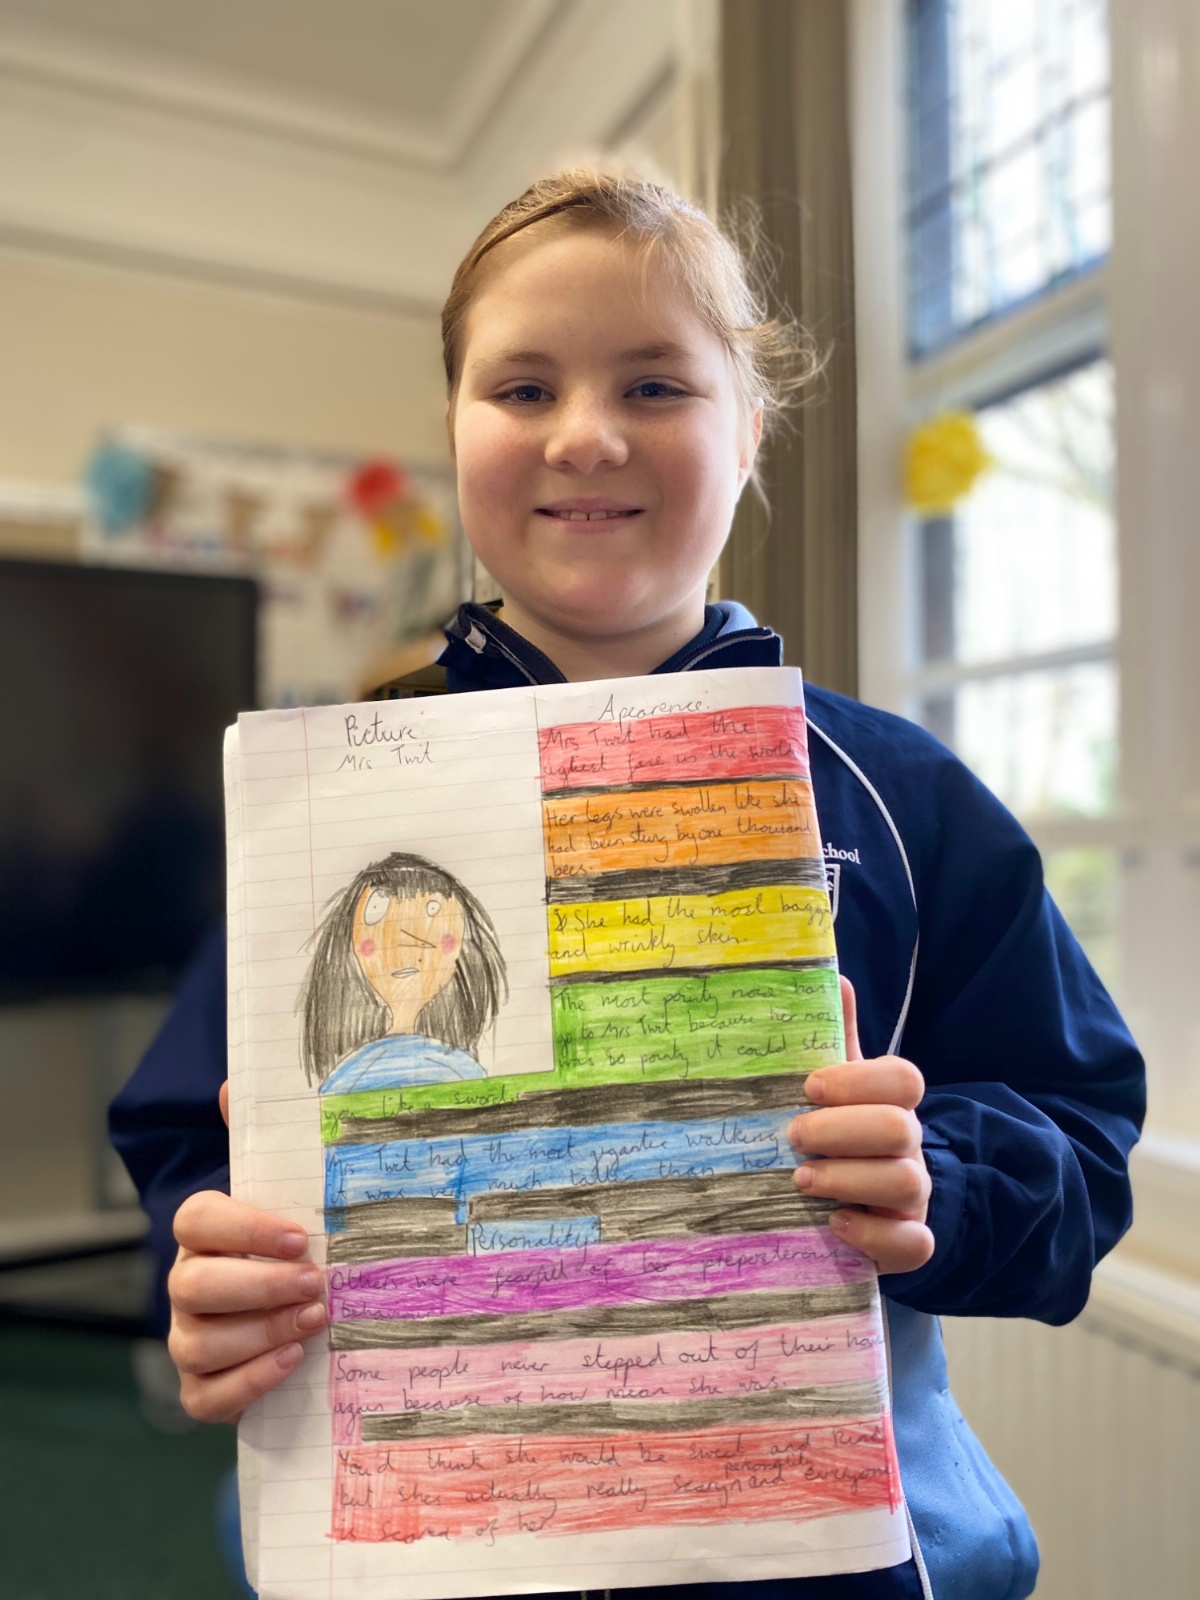 Picture:
Mrs Twit
Apearence:
Mrs Twit had the
ugliest face in the world
Her legs were swollen like she
had been stung by one thousand
bees.
She had the most baggy
and wrinkly skin.
The most pointy nose has
go to Mrs Twit because her nose
was so pointy it could stab
you like a sword.
Mrs Twit had the most gigantic walking
it was very much taller than her
Personality:
Others were fearfull of her preposterous
behaviour
Some people never stepped out of their
again because of how mean she was.
You'd think she would be sweet and kind
personality
but shes actually really scary and everyone
is scared of her.
chool